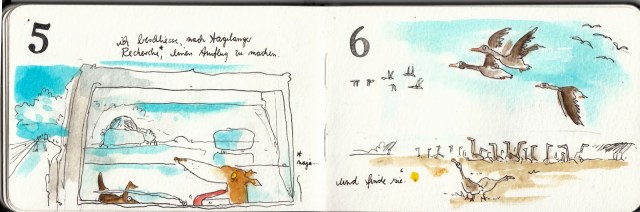 5
ich beschliesse, nach tagelanger
Recherche*, einen Ausflug zu machen.
*
naja..
6
und finde sie.